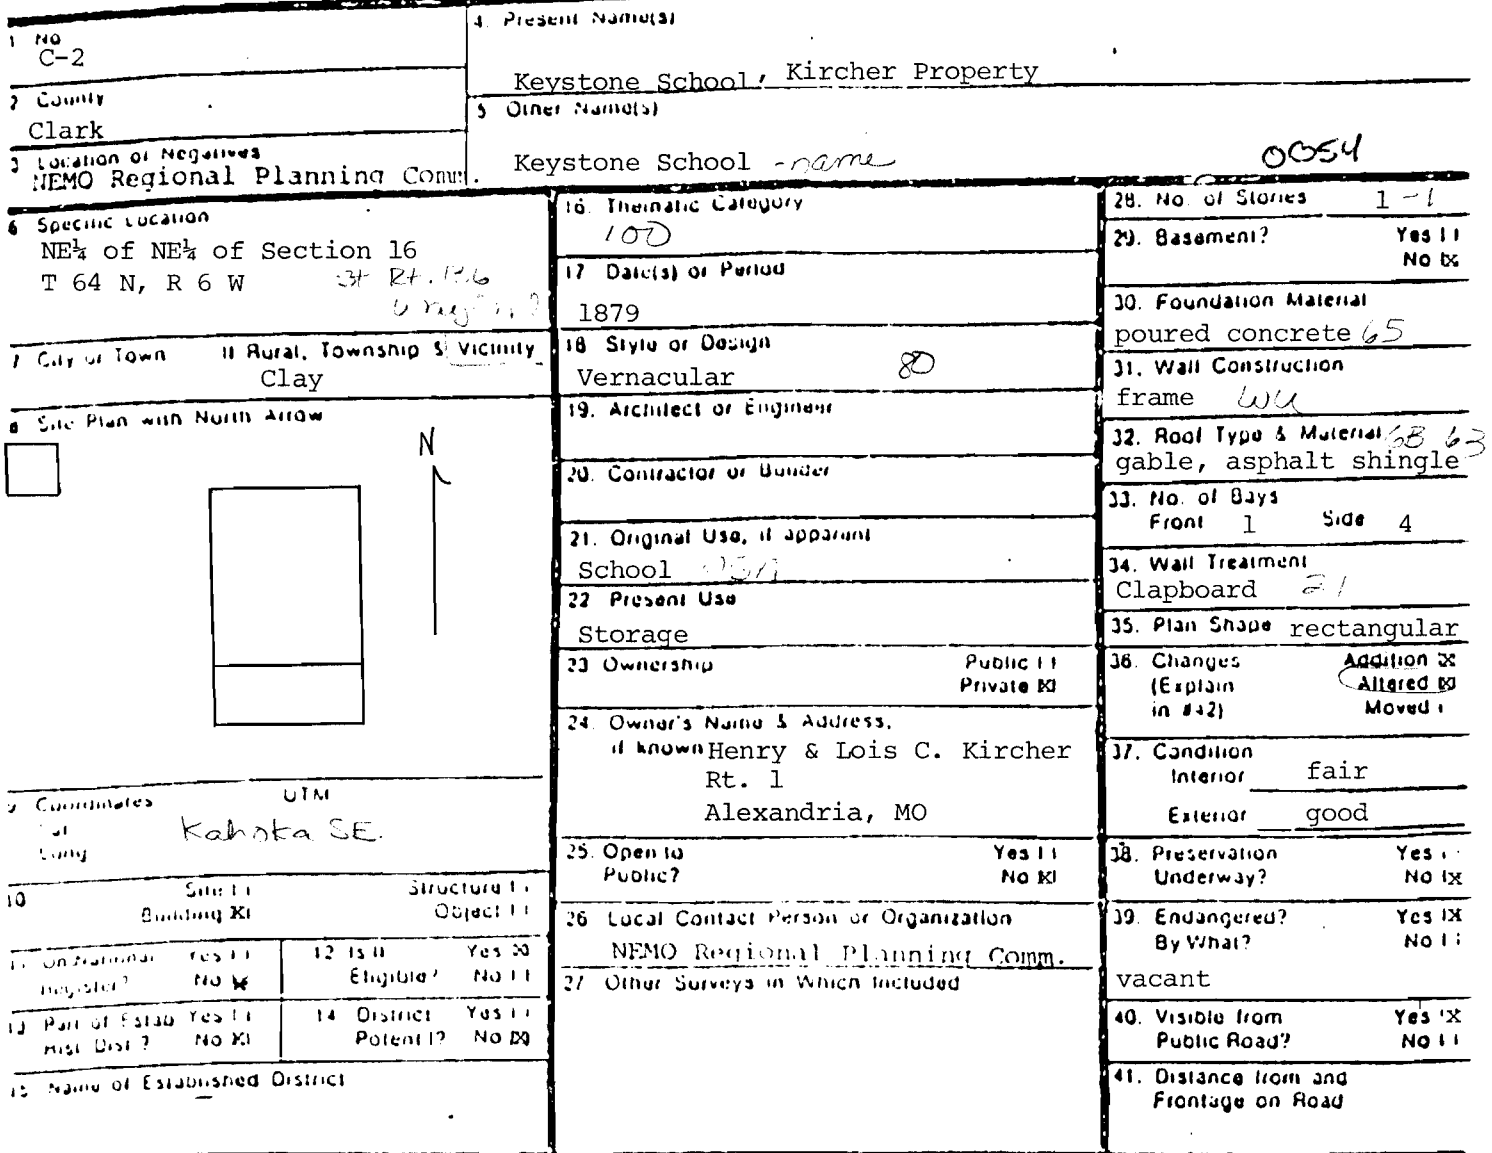 1 No
C-2
4. Present Name(s)
Keystone School, Kircher Property
2 County
Clark
5 Other Name(s)
Keystone School - name
0054
3 Location of Negatives
NEMO Regional Planning Comm.
6 Specific Location
NE¼ of NE¼ of Section 16
T 64 N, R 6 W
St Rt. 136
7 City or Town If Rural, Township & Vicinity
Clay
8 Site Plan with North Arrow
N
9 Coordinates UTM
Lat
Long
Kahoka SE.
10 Site [ ] Structure [ ]
Building [X] Object [ ]
11 On National Register? Yes [ ] No [X]
12 Is it Eligible? Yes [X] No [ ]
13 Part of Estab Hist Dist? Yes [ ] No [X]
14 District Potent'l? Yes [ ] No [X]
15 Name of Established District
16. Thematic Category
100
17 Date(s) or Period
1879
18 Style or Design
Vernacular 80
19. Architect or Engineer
20. Contractor or Builder
21. Original Use, if apparent
School
22 Present Use
Storage
23 Ownership Public [ ]
Private [X]
24. Owner's Name & Address,
if known Henry & Lois C. Kircher
Rt. 1
Alexandria, MO
25. Open to Yes [ ]
Public? No [X]
26 Local Contact Person or Organization
NEMO Regional Planning Comm.
27 Other Surveys in Which Included
28. No. of Stories 1 -1
29. Basement? Yes [ ]
No [X]
30. Foundation Material
poured concrete 65
31. Wall Construction
frame WU
32. Roof Type & Material GB 63
gable, asphalt shingle
33. No. of Bays
Front 1 Side 4
34. Wall Treatment
Clapboard 21
35. Plan Shape rectangular
36. Changes Addition [X]
(Explain Altered [X]
in #42) Moved [ ]
37. Condition
Interior fair
Exterior good
38. Preservation Yes [ ]
Underway? No [X]
39. Endangered? Yes [X]
By What? No [ ]
vacant
40. Visible from Yes [X]
Public Road? No [ ]
41. Distance from and
Frontage on Road